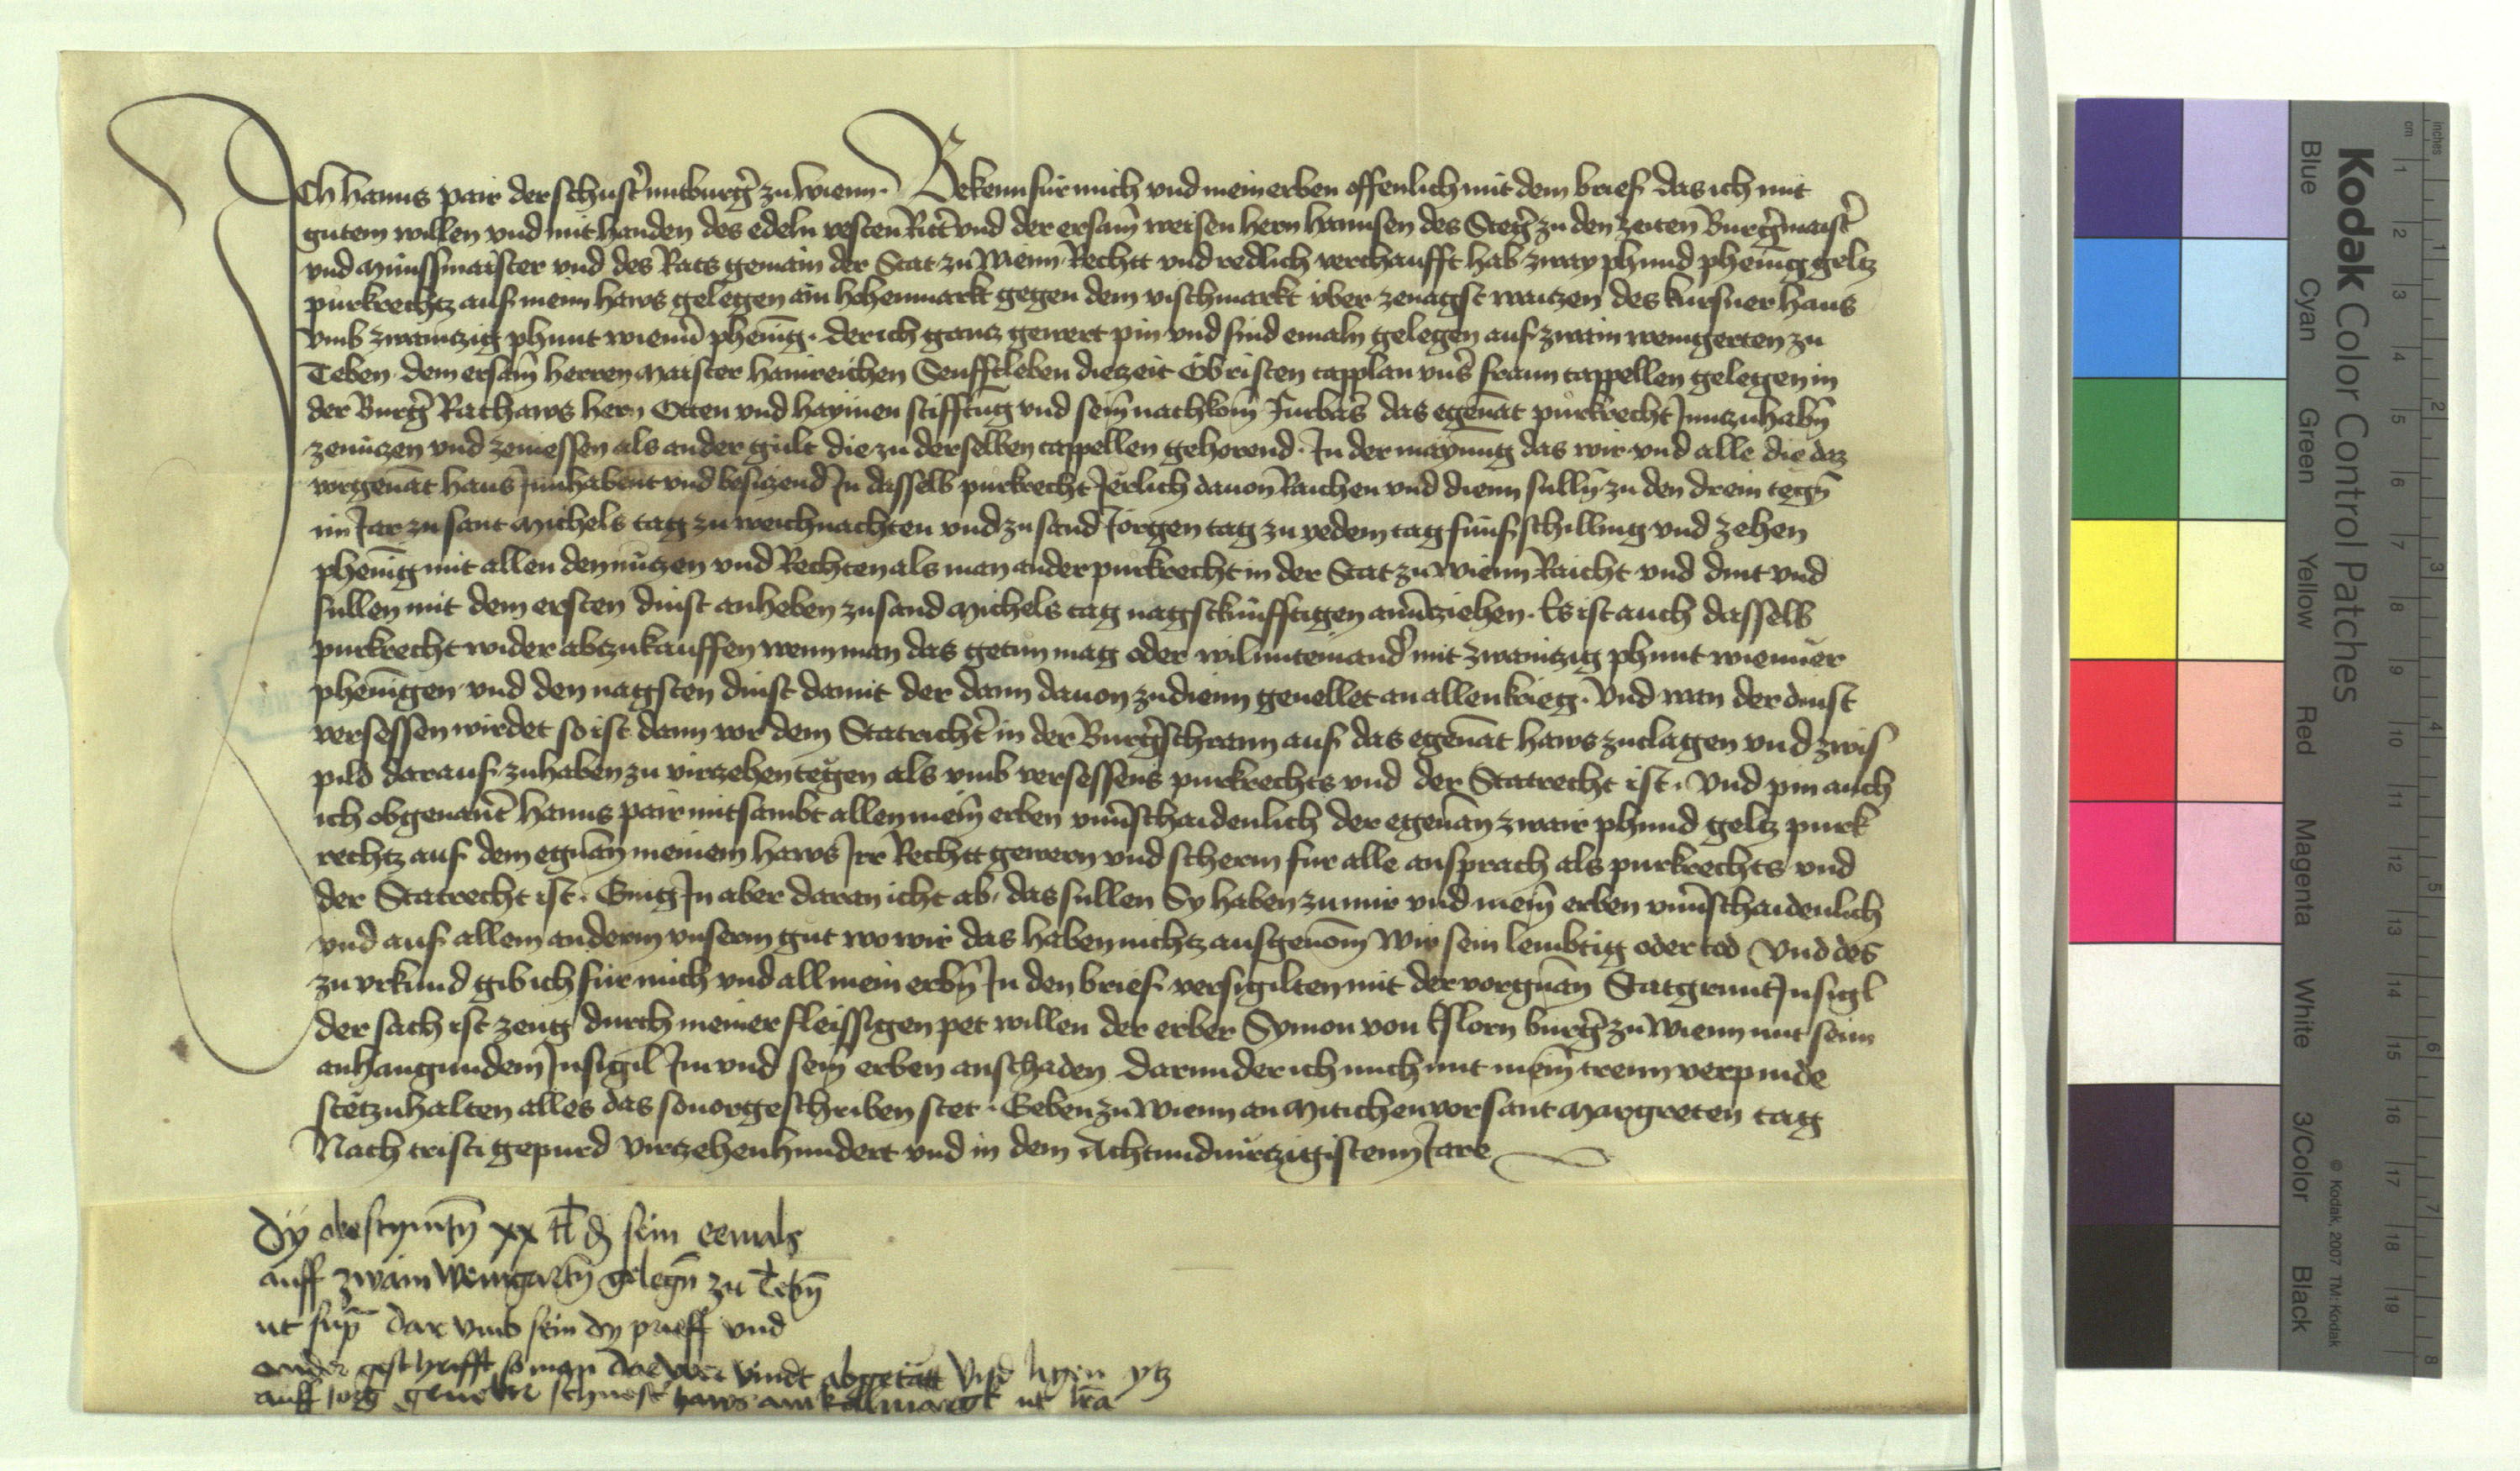 Ich Hanns Pair der schust̉ mitburg̉ zu Wienn · Bekenn für mich vnd mein erben offenlich mit dem brief das ich mit
gutem willen vnd mit handen des edeln vesten Ritt̉ vnd der ersam̄ weisen hern hannsen des Steg̉ zu den zeiten Burg̉maist̉
vnd Münssmaister vnd des Rats gemain der Stat zu Wienn Rechtt vnd redlich verchaufft hab zway phund phenīg geltz
purkrechtz auf meim haws gelegen am hohenmarkt gegen dem vischmarkt über zenagst des kursner haus
vmb zwaintzig phunt wienn̉ phenīg · der ich gancz gewert pin vnd sind emaln gelegen auf zwain weingerten zu
Teben dem ersam̄ herren Maister hainreichen Senfftleben diezeit Obristen capplan vns̉ fraun cappellen gelegen in
der Burg̉ Rathaws hern Otten vnd haymen stifftūg vnd sein̄ nachkom̄ Furbas̉ das egenāt purkrecht Innzuhabn̄
zenüczen vnd zeniessen als ander gült die zu derselben cappellen gehorend · In der maynūg das wir vnd alle die daz
vorgenāt haus Innhabent vnd besiczend In dasselb purkrecht Jerlich dauon Raichen vnd dienn sulln̄ zu den drein tegn̄
im Jar zu sant Michels tag zu weichnachten vnd zu sand Jorgen tag zu yedem tag fünf schilling vnd zehen
phenīg mit allen den nüczen vnd Rechten als man ander purkrecht in der Stat zu Wienn Raicht vnd dint vnd
sullen mit dem ersten dinst anheben zu sand Michels tag nagstkünfftigen an̄uerziehen · Es ist auch dasselb
purkrecht wider abczukauffen wenn man das getun mag oder wil miteinand̉ mit zwaintzig phunt wienner
phenīgen vnd den nagsten dinst damit der dann dauon zudienn geuellet an allen krieg · Vnd wan der dinst
versessen wirdet so ist dann vor dem Statricht̉ in der Burg̉schrann auf das egenāt haws zuclagen vnd zwis
pild darauf zuhaben zu virzehen tegen als vmb versessens purkrechts vnd der Statrecht ist · Vnd pin auch
ich obgenan̄t Hanns pair mitsambt allen mein̄ erben vnu̇schaidenlich der egenān zwair phund geltz purk
rechtz auf dem egn̄an meinem haws Irr Rechtt gewern vnd scherm für alle ansprach als purkrechts vnd
der Statrecht ist · Ging In aber daran icht ab, das sullen Sy haben zu mir vnd mein̄ erben vnu̇schaidenlich
vnd auf allem anderm vnserm gut wo wir das haben nichtz ausgenōm Wir sein lembtig oder tod Vnd des
zu vrkund gib ich für mich vnd all mein erbn̄ In den brief versigilten mit der vorgn̄an Statgrunt Insigl
der sach ist zeug durch meiner fleissigen pet willen der erber Symon von Eslorn burg̉ zu Wienn mit seim
anhangundem Insigil Im vnd sein̄ erben an schaden darunder ich mich mit mein̄ trenn verpinde
stet zu halten alles das so uorgeschriben stet · Geben zu Wienn an Mitichen vor sant Margreten tag
Nach cristi gepurd Virtzehenhundert vnd in dem Achtundvirtzigistenn Jare
Dy obestymtn̄ xx tl d sein eemals
auff zwain Weingartn̄ gelegn̄ zu Tebn̄
ut sup̄ dar vmb sein dy prieff vnd
ander geschrifft so man dar vber vindt abgetātt Vnd ligen ytz
auff Jorg schuest̉ haws am kollmargk ut lr̄a